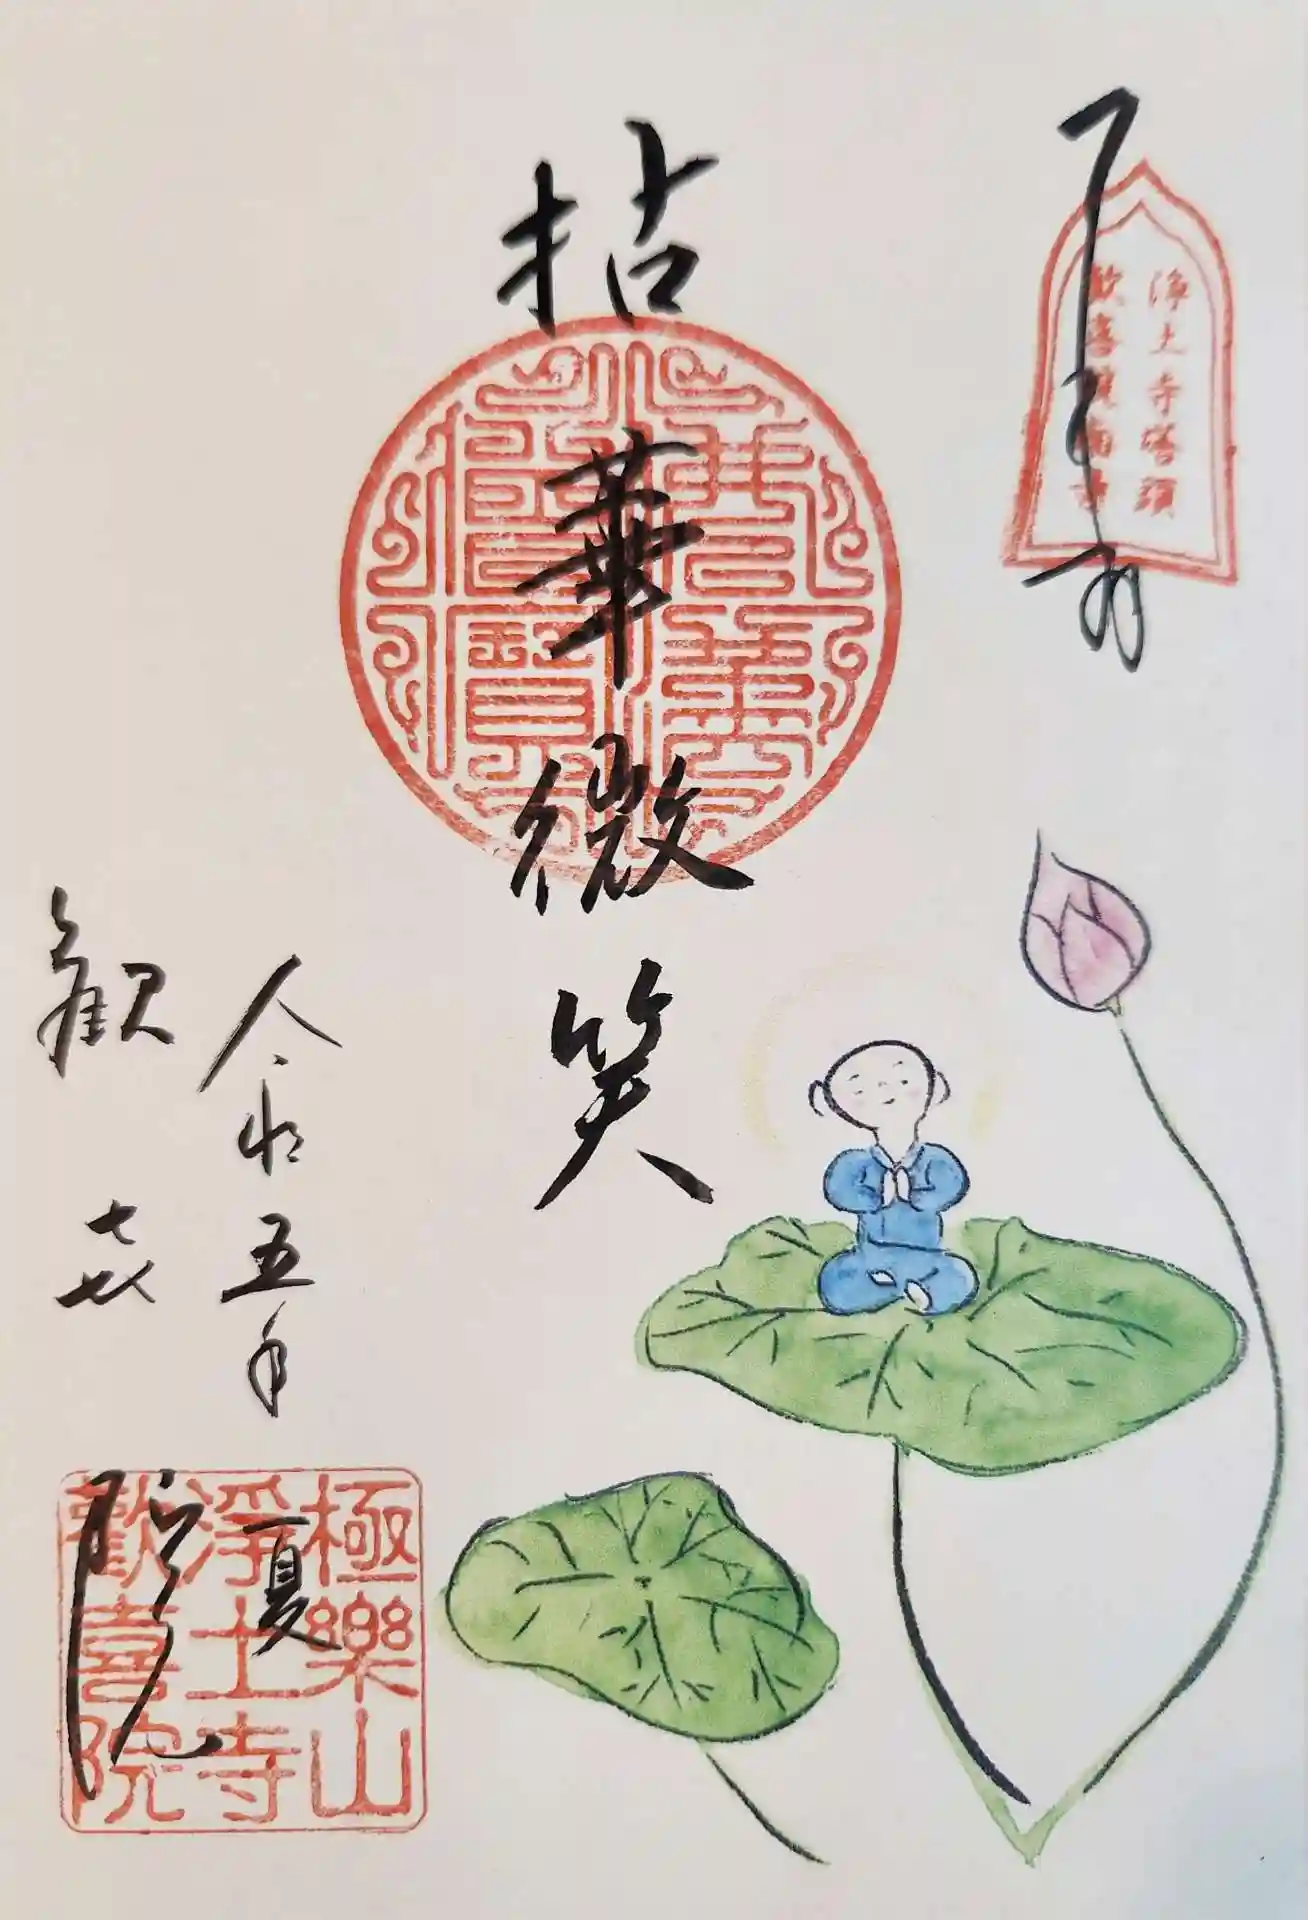 奉拝
浄土寺塔頭
歓喜院
拈華微笑
令和五年
夏
歓㐂
院
極樂山
淨土寺
歡喜院